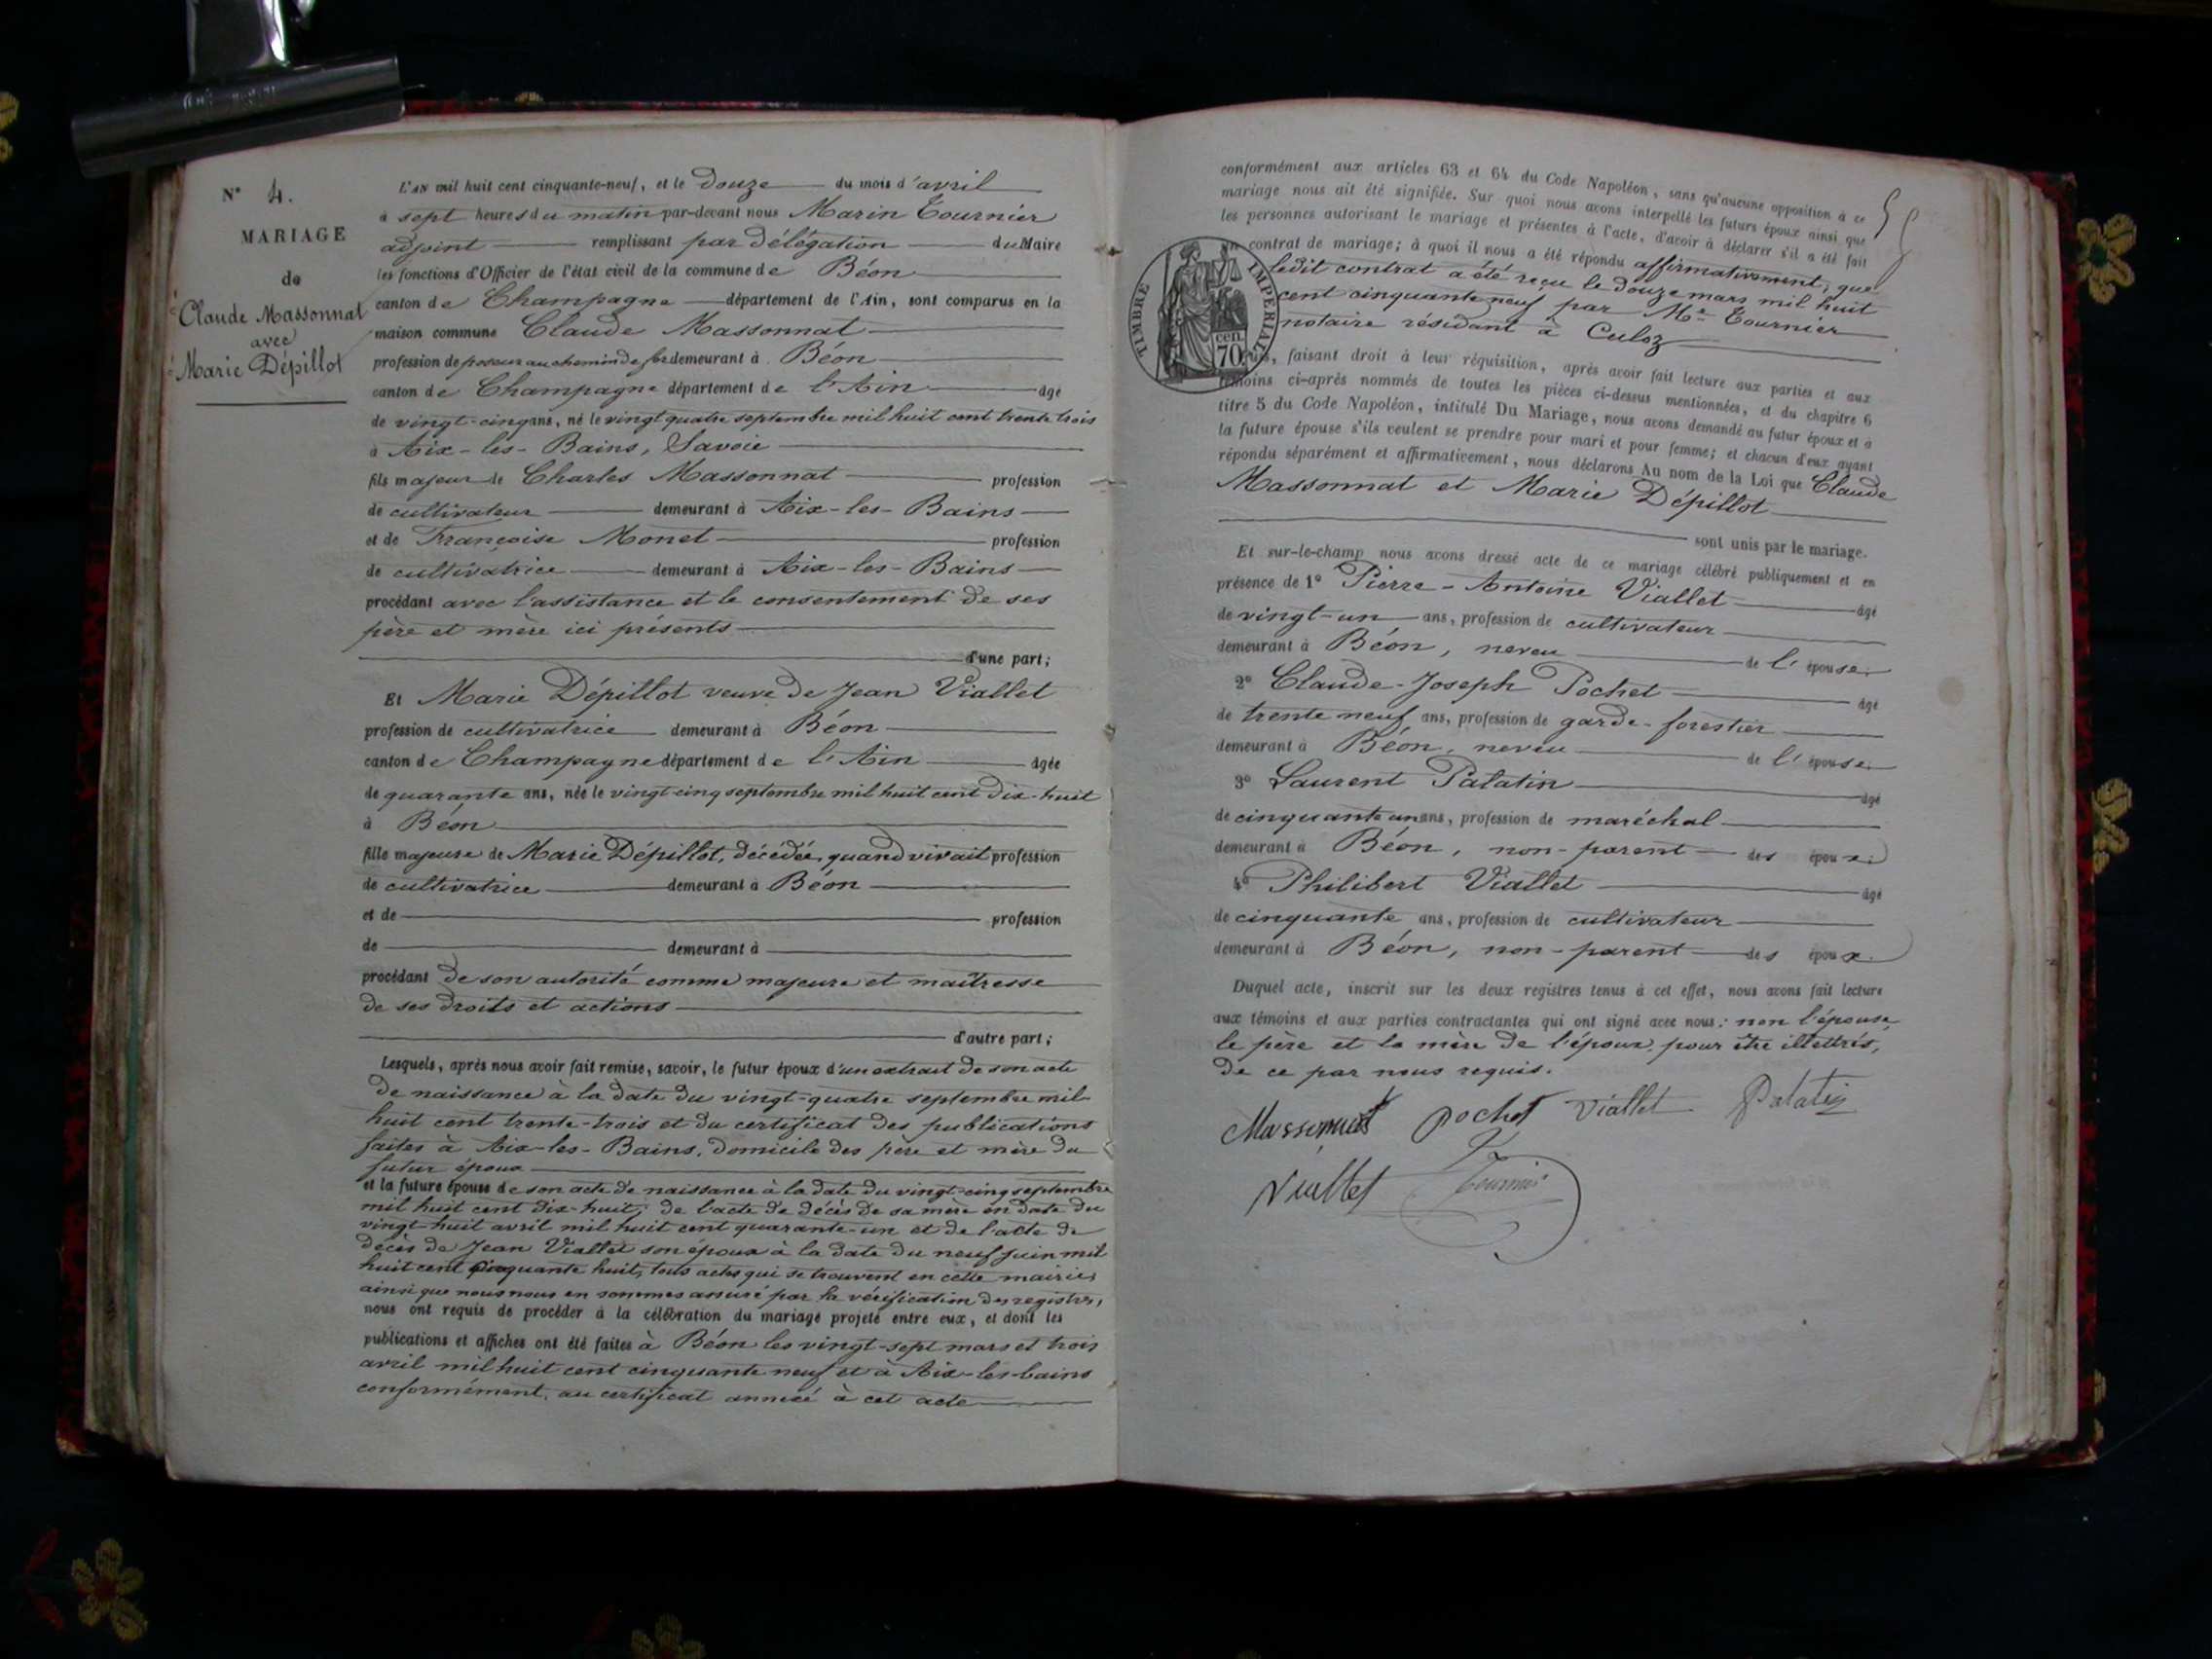 N° 4.
MARIAGE
de
Claude Massonnat
avec
Marie Dépillot
L'AN mil huit cent cinquante-neuf, et le Douze du mois d'avril
à sept heures du matin par-devant nous Marin Tournier
adjoint remplissant par délégation du Maire
les fonctions d'Officier de l'état civil de la commune de Béon
canton de Champagne département de l'Ain, sont comparus en la
maison commune Claude Massonnat
profession de poseur au chemin de fer demeurant à Béon
canton de Champagne département de l'Ain âgé
de vingt-cinq ans, né le vingt quatre septembre mil huit cent trente trois
à Aix-les-Bains, Savoie
fils majeur de Charles Massonnat profession
de cultivateur demeurant à Aix-les-Bains
et de Françoise Monet profession
de cultivatrice demeurant à Aix-les-Bains
procédant avec l'assistance et le consentement de ses
père et mère ici présents
d'une part;
Et Marie Dépillot veuve de Jean Viallet
profession de cultivatrice demeurant à Béon
canton de Champagne département de l'Ain âgée
de quarante ans, née le vingt-cinq septembre mil huit cent dix-huit
à Béon
fille majeure de Marie Dépillot, décédée, quand vivait profession
de cultivatrice demeurant à Béon
et de profession
de demeurant à
procédant de son autorité comme majeure et maîtresse
de ses droits et actions
d'autre part;
Lesquels, après nous avoir fait remise, savoir, le futur époux d'un extrait de son acte
de naissance à la date du vingt-quatre septembre mil
huit cent trente-trois et du certificat des publications
faites à Aix-les-Bains, domicile des père et mère du
futur époux
et la future épouse de son acte de naissance à la date du vingt-cinq septembre
mil huit cent dix-huit; de l'acte de décès de sa mère en date du
vingt-huit avril mil huit cent quarante-un et de l'acte de
décès de Jean Viallet son époux à la date du neuf juin mil
huit cent cinquante huit, tous actes qui se trouvent en cette mairie,
ainsi que nous nous en sommes assuré par la vérification des registres,
nous ont requis de procéder à la célébration du mariage projeté entre eux, et dont les
publications et affiches ont été faites à Béon les vingt-sept mars et trois
avril mil huit cent cinquante neuf et à Aix-les-bains
conformément au certificat annexé à cet acte
conformément aux articles 63 et 64 du Code Napoléon, sans qu'aucune opposition à ce
mariage nous ait été signifiée. Sur quoi nous avons interpellé les futurs époux ainsi que
les personnes autorisant le mariage et présentes à l'acte, d'avoir à déclarer s'il a été fait
un contrat de mariage; à quoi il nous a été répondu affirmativement, que
ledit contrat a été reçu le douze mars mil huit
cent cinquante neuf par Me Tournier
notaire résidant à Culoz
TIMBRE IMPERIAL
cen.
70
Puis, faisant droit à leur réquisition, après avoir fait lecture aux parties et aux
témoins ci-après nommés de toutes les pièces ci-dessus mentionnées, et du chapitre 6
titre 5 du Code Napoléon, intitulé Du Mariage, nous avons demandé au futur époux et à
la future épouse s'ils veulent se prendre pour mari et pour femme; et chacun d'eux ayant
répondu séparément et affirmativement, nous déclarons Au nom de la Loi que Claude
Massonnat et Marie Dépillot
sont unis par le mariage.
Et sur-le-champ nous avons dressé acte de ce mariage célébré publiquement et en
présence de 1° Pierre-Antoine Viallet âgé
de vingt-un ans, profession de cultivateur
demeurant à Béon, neveu de l'épouse.
2° Claude-Joseph Pochet âgé
de trente neuf ans, profession de garde-forestier
demeurant à Béon, neveu de l'épouse.
3° Laurent Palatin âgé
de cinquante un ans, profession de maréchal
demeurant à Béon, non-parent des époux.
4° Philibert Viallet âgé
de cinquante ans, profession de cultivateur
demeurant à Béon, non-parent des époux.
Duquel acte, inscrit sur les deux registres tenus à cet effet, nous avons fait lecture
aux témoins et aux parties contractantes qui ont signé avec nous: non l'épouse
le père et la mère de l'époux, pour être illettrés,
de ce par nous requis.
Massonnat Pochet Viallet Palatin
Viallet Tournier